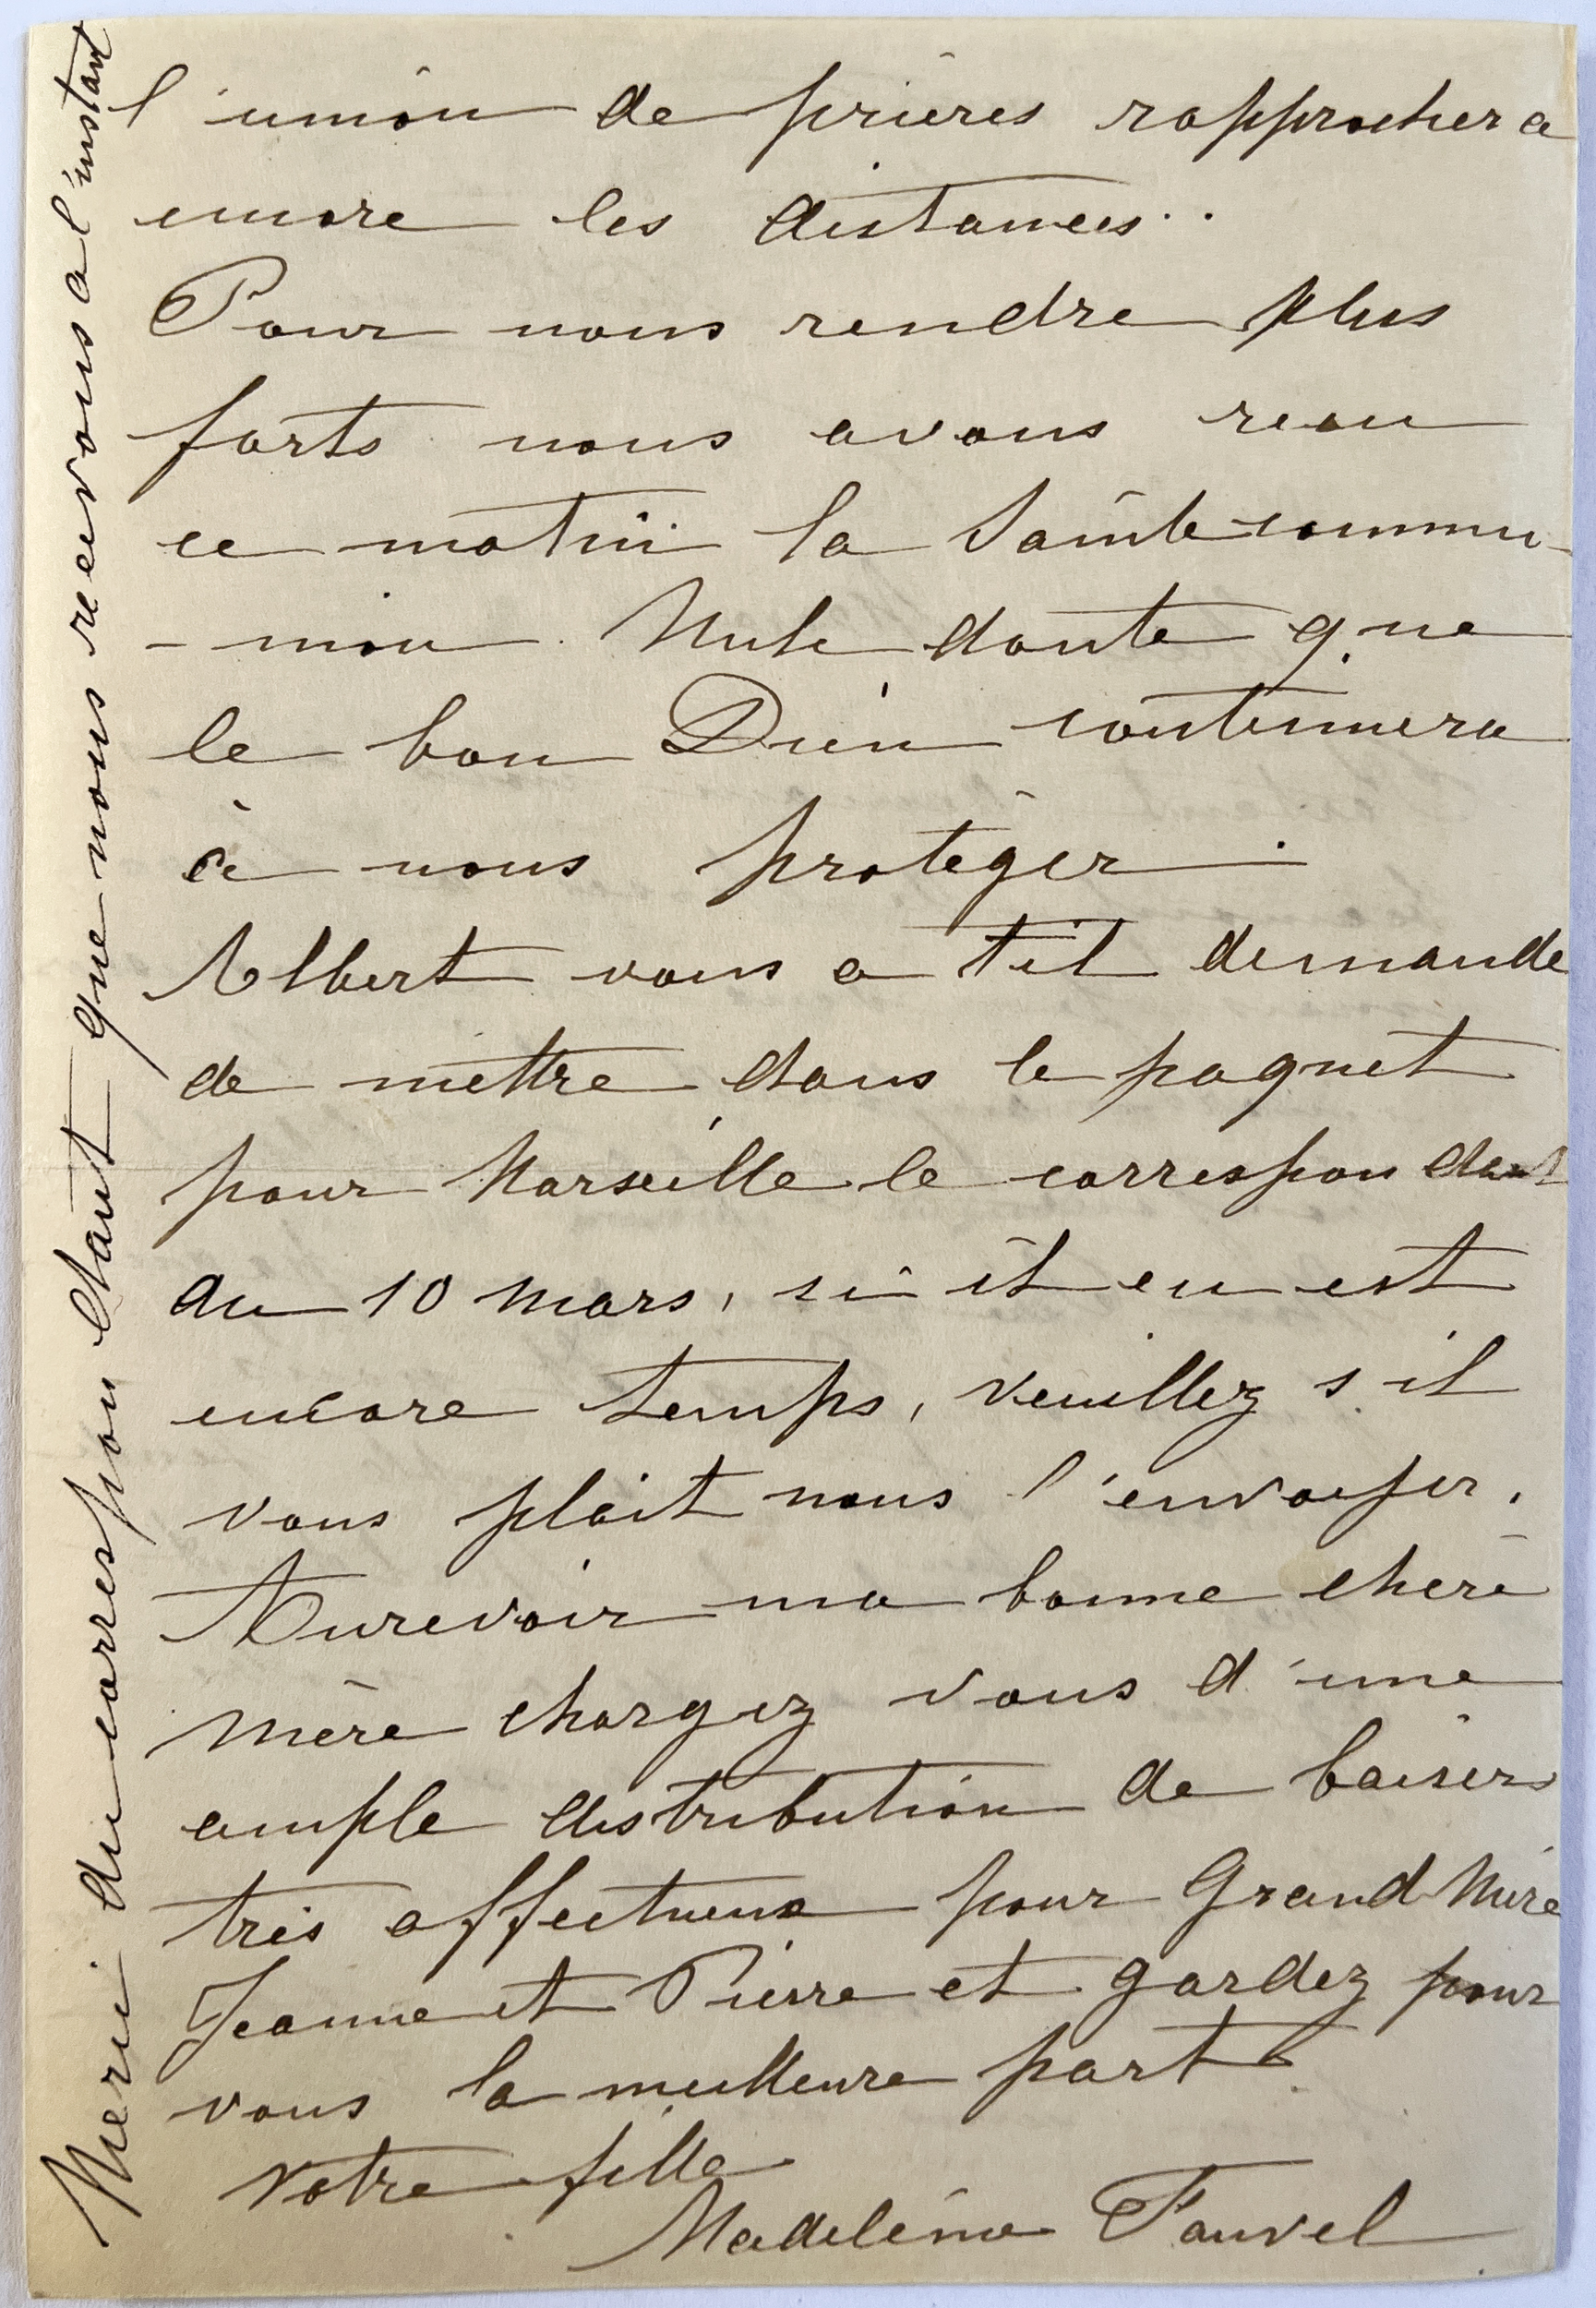 l'union de prières rapprochera
encore les distances..
Pour nous rendre plus
forts nous avons recu
ce matin la Sainte commu-
-nion. Nule doute que
le bon Dieu continuera
à nous protéger.
Albert vous a t'il demandé
de mettre dans le paquet
pour Marseille le correspondant
du 10 Mars, si il en est
encore temps, veuillez s'il
vous plait nous l'envoyer.
Aurevoir ma bonne chère
Mère chargez vous d'une
ample distribution de baisers
très affectueux pour Grand Mère
Jeanne et Pierre et gardez pour
vous la meilleure part.
Votre fille
Madeleine Fauvel
Merci du correspondant que nous recevons a l'instant